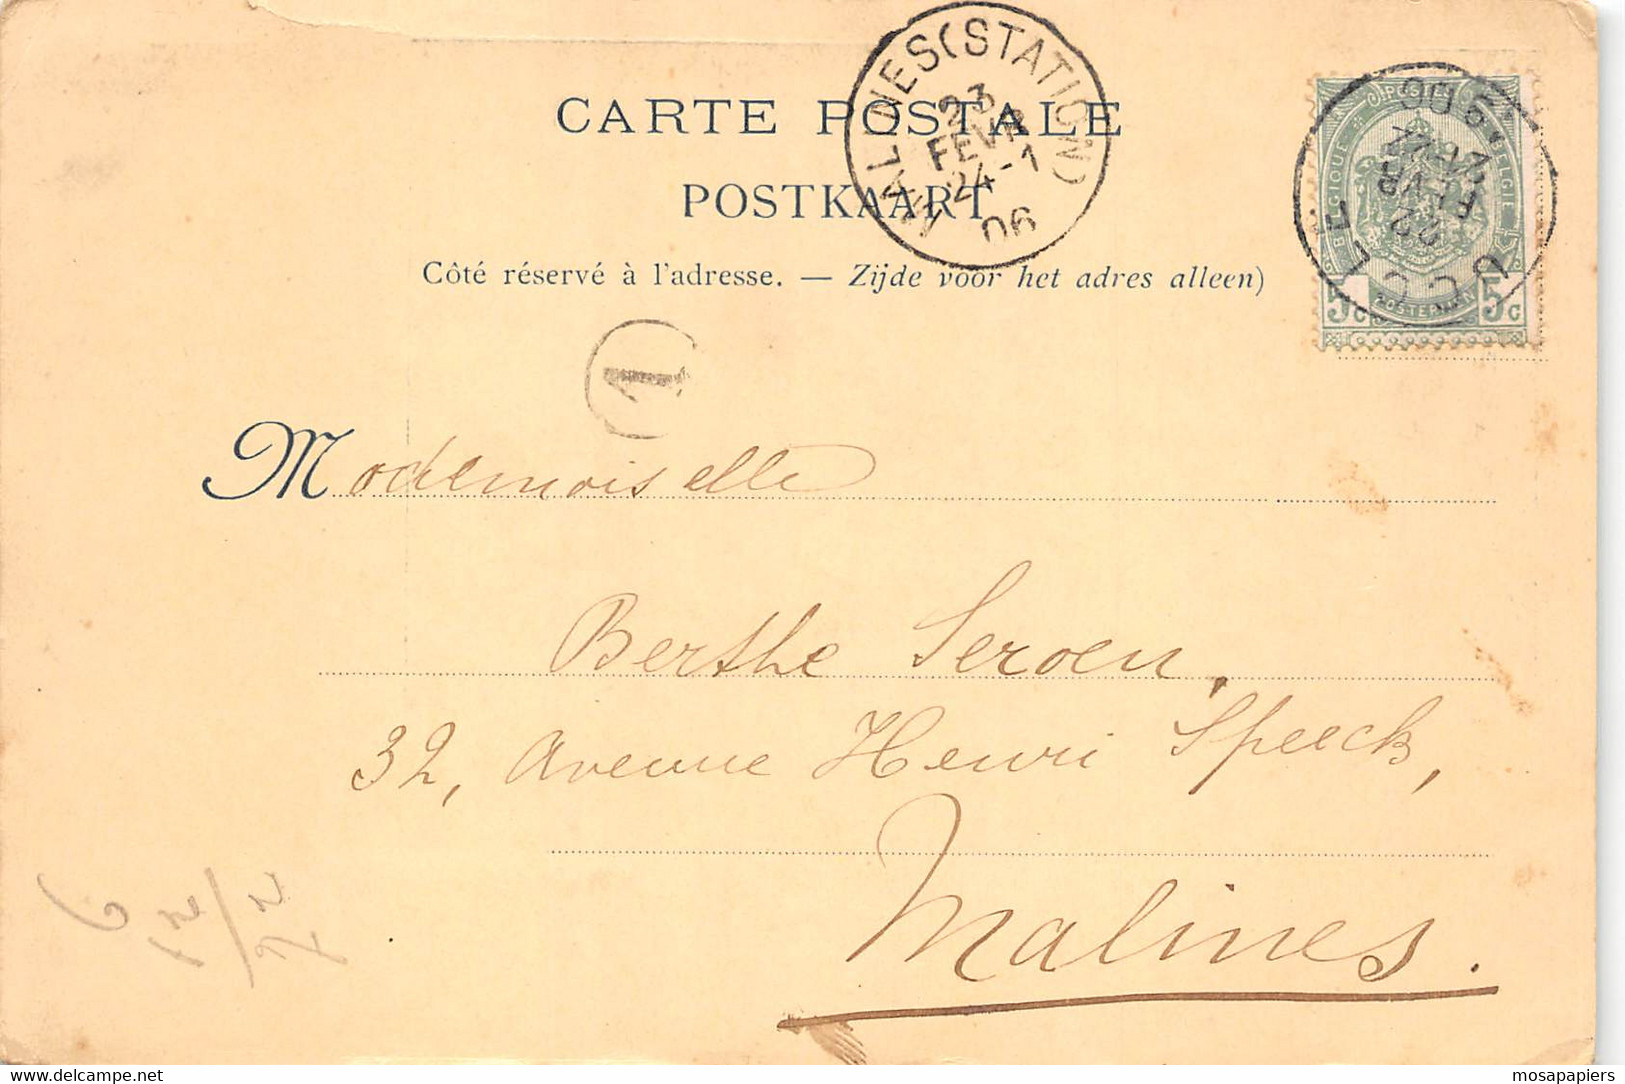 CARTE POSTALE
POSTKAART
Côté réservé à l'adresse. — Zijde voor het adres alleen)
MALINES (STATION)
23
FEVR
24-1
06
UCCLE
22
FEVR
06
BELGIQUE POSTES BELGIE
5c POSTERIJEN 5c
1
Mademoiselle
Berthe Seroen,
32, Avenue Henri Speeck,
Malines.
mosapapiers